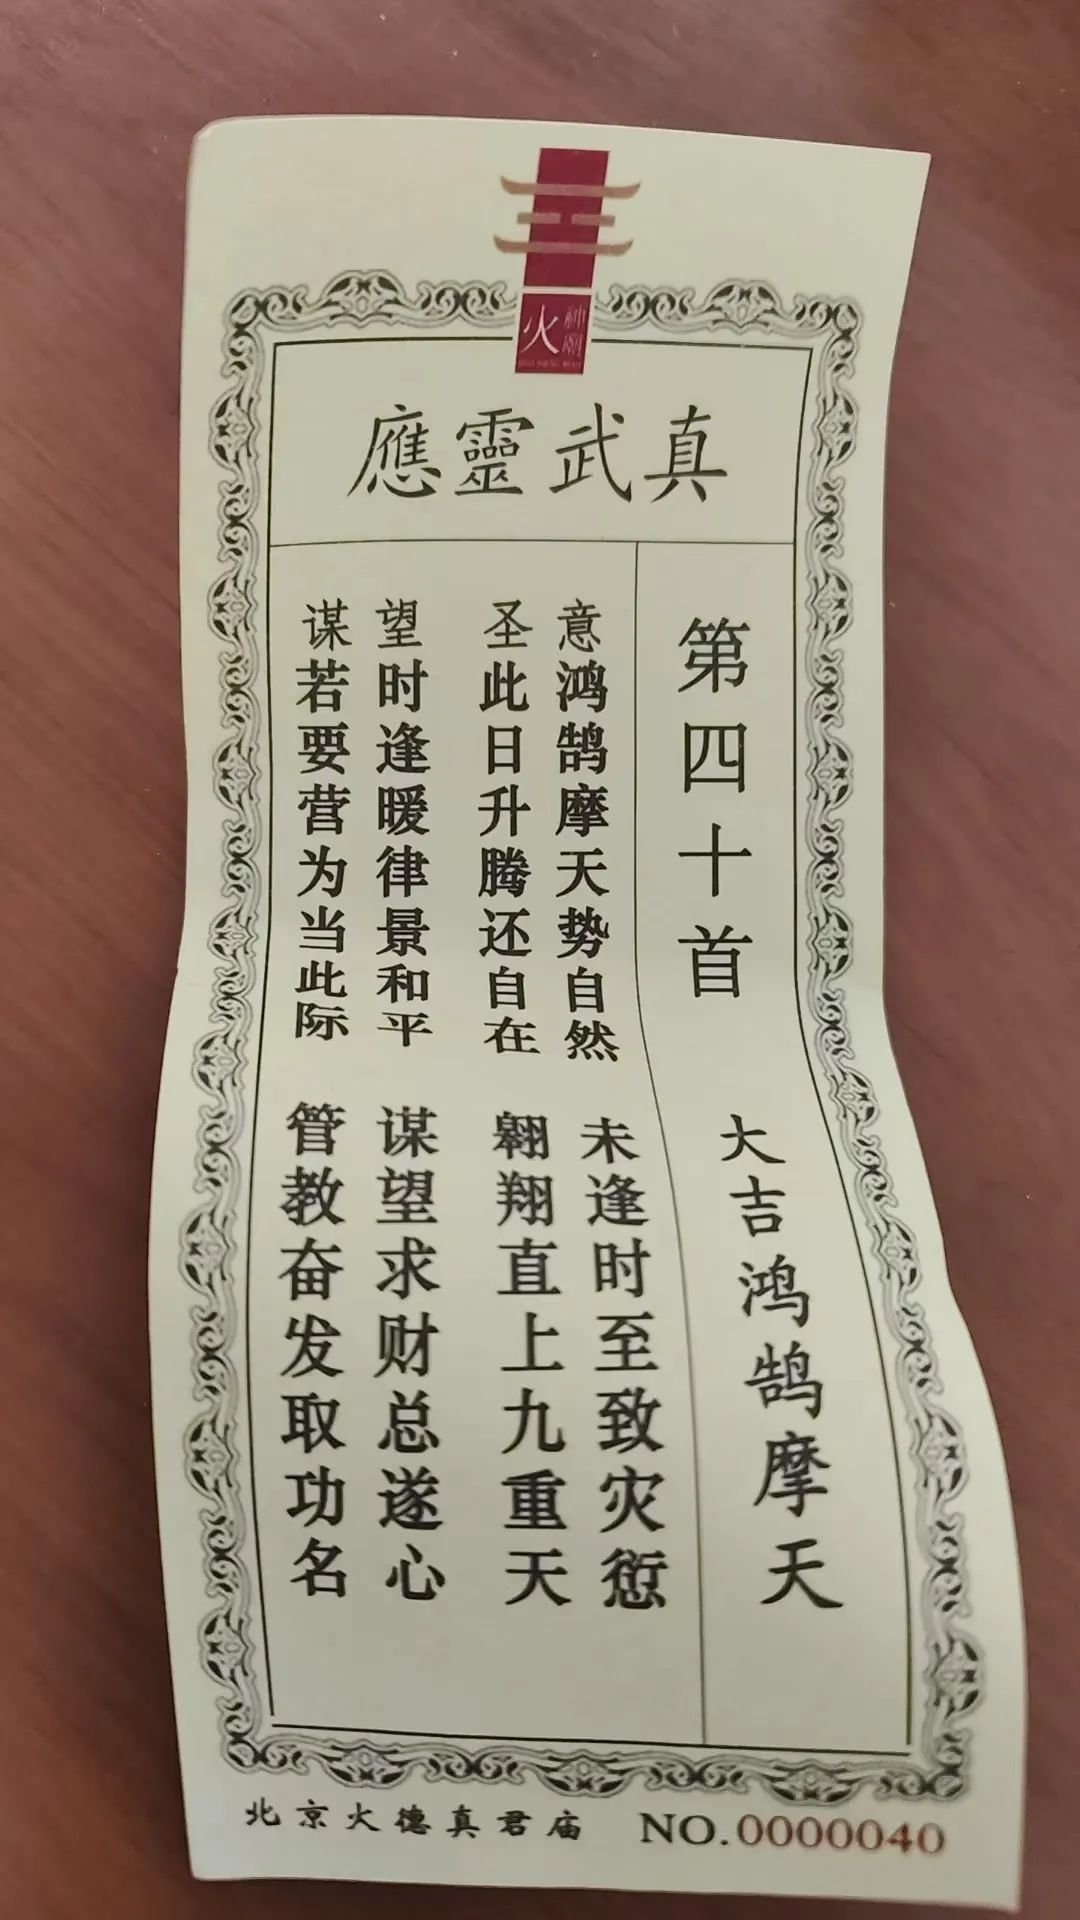 火
神廟
真武靈應
第四十首 大吉鸿鹄摩天
意鸿鹄摩天势自然 未逢时至致灾愆
圣此日升腾还自在 翱翔直上九重天
望时逢暖律景和平 谋望求财总遂心
谋若要营为当此际 管教奋发取功名
北京火德真君庙 NO.0000040